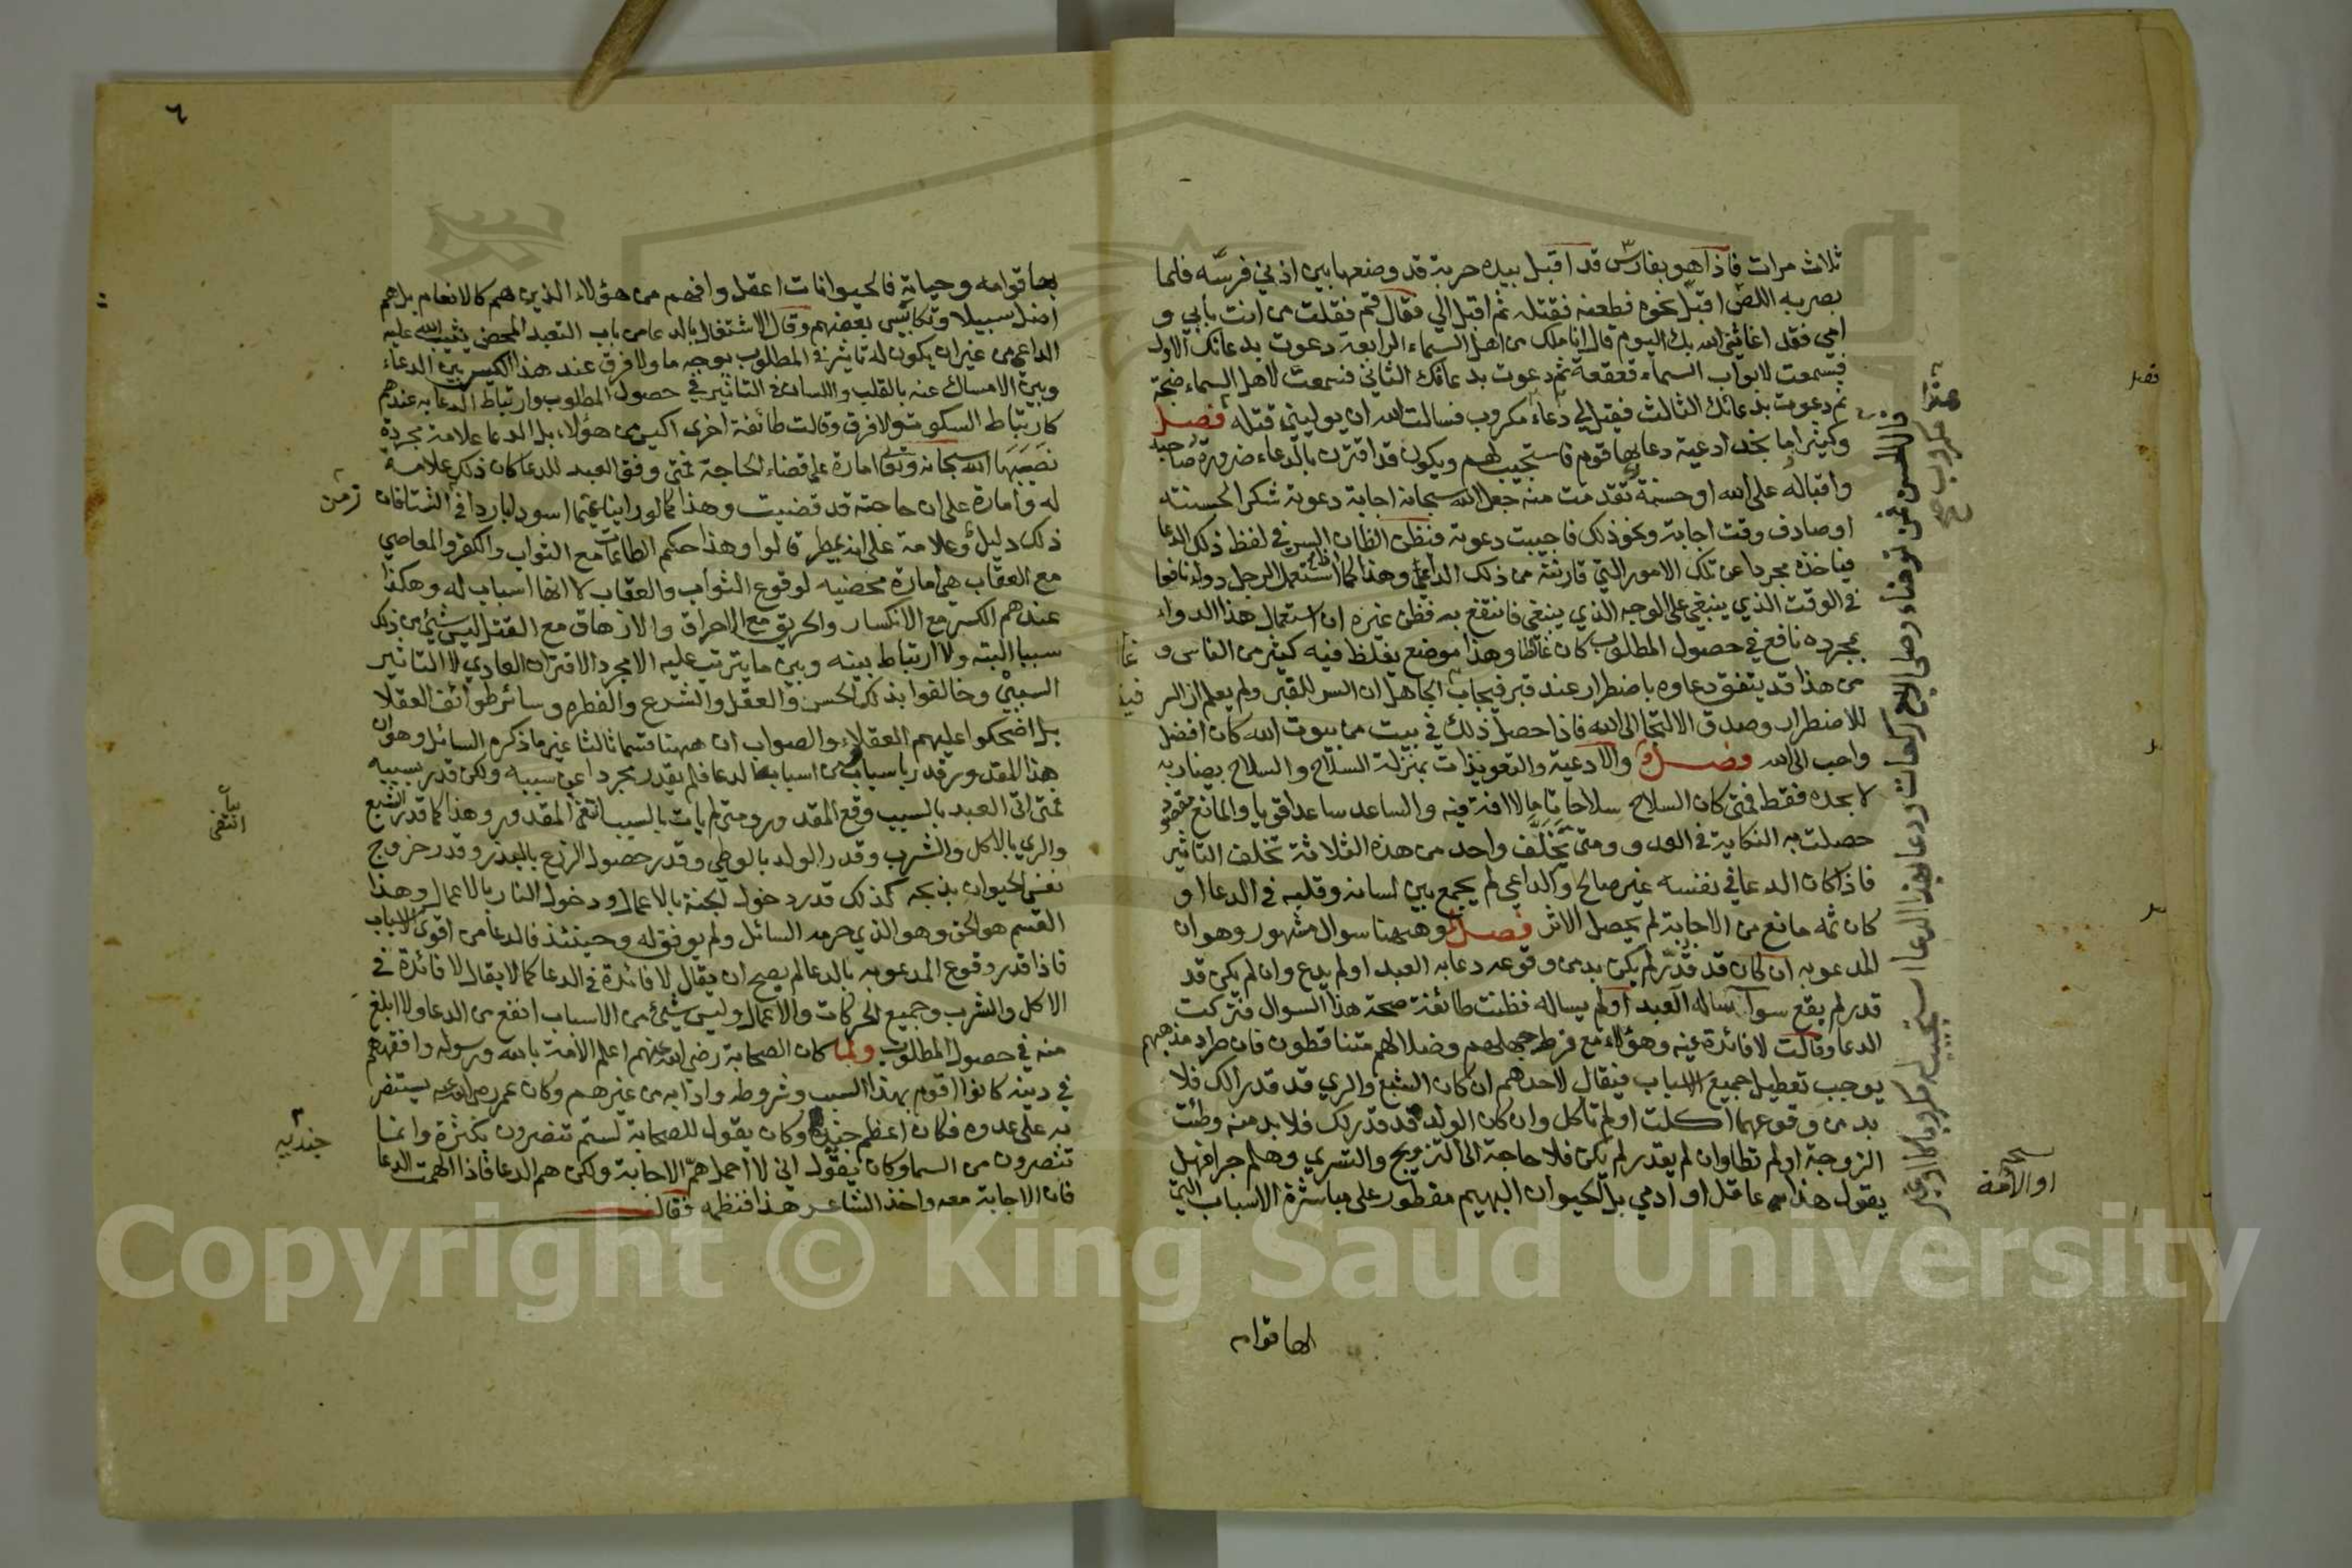 ثلاث مرات فاذا هو بفارس قد اقبل بيده حربة قد وضعها بين اذني فرسه فلما
بصر به اللص اقبل نحوه فطعنه فقتله ثم اقبل الي فقال قم فقلت من انت بابي و
امي فقد اغاثني الله بك اليوم قال انا ملك من اهل السماء الرابعة دعوت بدعائك الاول
فسمعت لابواب السماء قعقعة ثم دعوت بدعائك الثاني فسمعت لاهل السماء ضجة
ثم دعوت بدعائك الثالث فقيل لي دعاء مكروب فسالت الله ان يوليني قتله فصل
وكثيرا ما نجد ادعية دعا بها قوم فاستجيب لهم ويكون قد اقترن بالدعاء ضرورة صاحبه
واقباله على الله او حسنة تقدمت منه جعل الله سبحانه اجابة دعوته شكرا لحسنته
او صادف وقت اجابة ونحو ذلك فاجيبت دعوته فيظن الظان السر في لفظ ذلك الدعا
فياخذه مجردا عن تلك الامور التي قارنته من ذلك الداعي وهذا كما استعمل الرجل دواء نافعا
في الوقت الذي ينبغي على الوجه الذي ينبغي فانتفع به فظن غيره ان استعمال هذا الدواء
بمجرده نافع في حصول المطلوب كان غالطا وهذا موضع يغلط فيه كثير من الناس و
من هذا قد يتفق دعاوه باضطرار عند قبر فيجاب الجاهل ان السر للقبر ولم يعلم ان السر
للاضطرار وصدق الالتجا الى الله فاذا حصل ذلك في بيت من بيوت الله كان افضل
واحب الى الله فصل والادعية والتعويذات بمنزلة السلاح والسلاح بضاربه
لا بحده فقط فمتى كان السلاح سلاحا تاما لا افة فيه والساعد ساعدا قويا والمانع مفقود
حصلت به النكاية في العدو ومتى تخلف واحد من هذه الثلاثة تخلف التاثير
فاذا كان الدعا في نفسه غير صالح والداعي لم يجمع بين لسانه وقلبه في الدعا او
كان ثمه مانع من الاجابة لم يحصل الاثر فصل وههنا سوال مشهور وهو ان
المدعو به ان كان قد قدر لم يكن بد من وقوعه دعا به العبد او لم يدع وان لم يكن قد
قدر لم يقع سوا ساله العبد او لم يساله فظنت طائفة صحة هذا السوال فتركت
الدعا وقالت لا فائدة فيه وهؤلاء مع فرط جهلهم وضلالهم متناقطون فان طرد مذهبهم
يوجب تعطيل جميع الاسباب فيقال لاحدهم ان كان الشبع والري قد قدر الك فلا
بد من وقوعهما اكلت او لم تاكل وان كان الولد قد قدر لك فلا بد منه وطئت
الزوجة او لم تطا وان لم يقدر لم يكن فلا حاجة الى التزويج والتسري وهلم جرا فهل
يقول هذا عاقل او ادمي بل الحيوان البهيم مفطور على مباشرة الاسباب التي
الها قوامه
او الامة
فصل
٦
بها قوامه وحياته فالحيوانات اعقل وافهم من هؤلاء الذين هم كالانعام بل هم
اضل سبيلا وتكايس بعضهم وقال الاشتغال بالدعا من باب التعبد المحض يثيب الله عليه
الداعي من غير ان يكون له تاثير في المطلوب بوجه ما ولا فرق عند هذا الكيس بين الدعاء
وبين الامساك عنه بالقلب واللسان في التاثير في حصول المطلوب وارتباط الدعا به عندهم
كارتباط السكوت ولا فرق وقالت طائفة اخرى اكيس من هؤلاء بل الدعا علامة مجردة
نصبها الله سبحانه وتعالى امارة على قضاء الحاجة فمتى وفق العبد للدعا كان ذلك علامة
له وامارة على ان حاجته قد قضيت وهذا كما لو راينا غيما اسود باردا في الشتا فان
ذلك دليل وعلامة على انه يمطر قالوا وهذا حكم الطاعات مع الثواب والكفر والمعاصي
مع العقاب هي امارة محضيه لوقوع الثواب والعقاب لا انها اسباب له وهكذا
عندهم الكسر مع الانكسار والحريق مع الاحراق والازهاق مع القتل ليس شئ من ذلك
سببا البته ولا ارتباط بينه وبين ما يترتب عليه الا مجرد الاقتران العادي لا التاثير
السببي وخالفوا بذلك الحس والعقل والشرع والفطره وسائر طوائف العقلا
بل اضحكوا عليهم العقلاء والصواب ان ههنا قسما ثالثا غير ما ذكره السائل وهو ان
هذا المقدور قدر باسباب من اسبابه الدعا فلم يقدر مجردا عن سببه ولكن قدر بسببه
فمتى اتى العبد بالسبب وقع المقدور ومتى لم يات بالسبب انتفى المقدور وهذا كما قدر الشبع
والري بالاكل والشرب وقدر الولد بالوطي وقدر حصول الزرع بالبذر وقدر خروج
نفس الحيوان بذبحه كذلك قدر دخول الجنة بالاعمال ودخول النار بالاعمال وهذا
القسم هو الحق وهو الذي حرمه السائل ولم يوفق له وحينئذ فالدعا من اقوى الاسباب
فاذا قدر وقوع المدعو به بالدعا لم يصح ان يقال لا فائدة في الدعا كما لا يقال لا فائدة في
الاكل والشرب وجميع الحركات والاعمال وليس شئ من الاسباب انفع من الدعا ولا ابلغ
منه في حصول المطلوب ولما كان الصحابة رضي الله عنهم اعلم الامة بالله ورسوله وافقههم
في دينه كانوا اقوم بهذا السبب وشروطه وادابه من غيرهم وكان عمر رضي الله عنه يستنصر
به على عدوه فكان اعظم جنده وكان يقول للصحابة لستم تنصرون بكثرة وانما
تنصرون من السما وكان يقول اني لا احمل هم الاجابة ولكن هم الدعا فاذا الهمت الدعا
فان الاجابة معه واخذ الشاعر هذا فنظمه فقال
زمن
انتفى
جنديه
Copyright © King Saud University